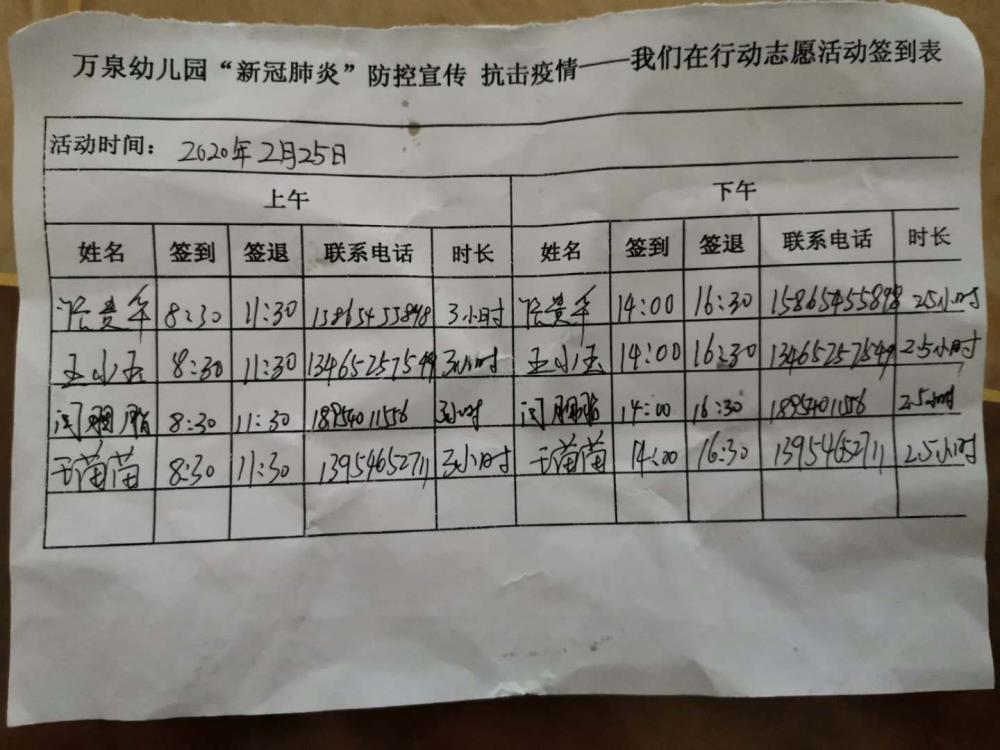 万泉幼儿园“新冠肺炎”防控宣传 抗击疫情——我们在行动志愿活动签到表
活动时间： 2020年2月25日
上午 下午
姓名 签到 签退 联系电话 时长 姓名 签到 签退 联系电话 时长
8:30 11:30 15865455898 3小时 14:00 16:30 15865455898 2.5小时
王小玉 8:30 11:30 13465257549 3小时 王小玉 14:00 16:30 13465257549 2.5小时
闫胭脂 8:30 11:30 18954011556 3小时 闫胭脂 14:00 16:30 18954011556 2.5小时
于苗苗 8:30 11:30 13954652711 3小时 于苗苗 14:00 16:30 13954652711 2.5小时